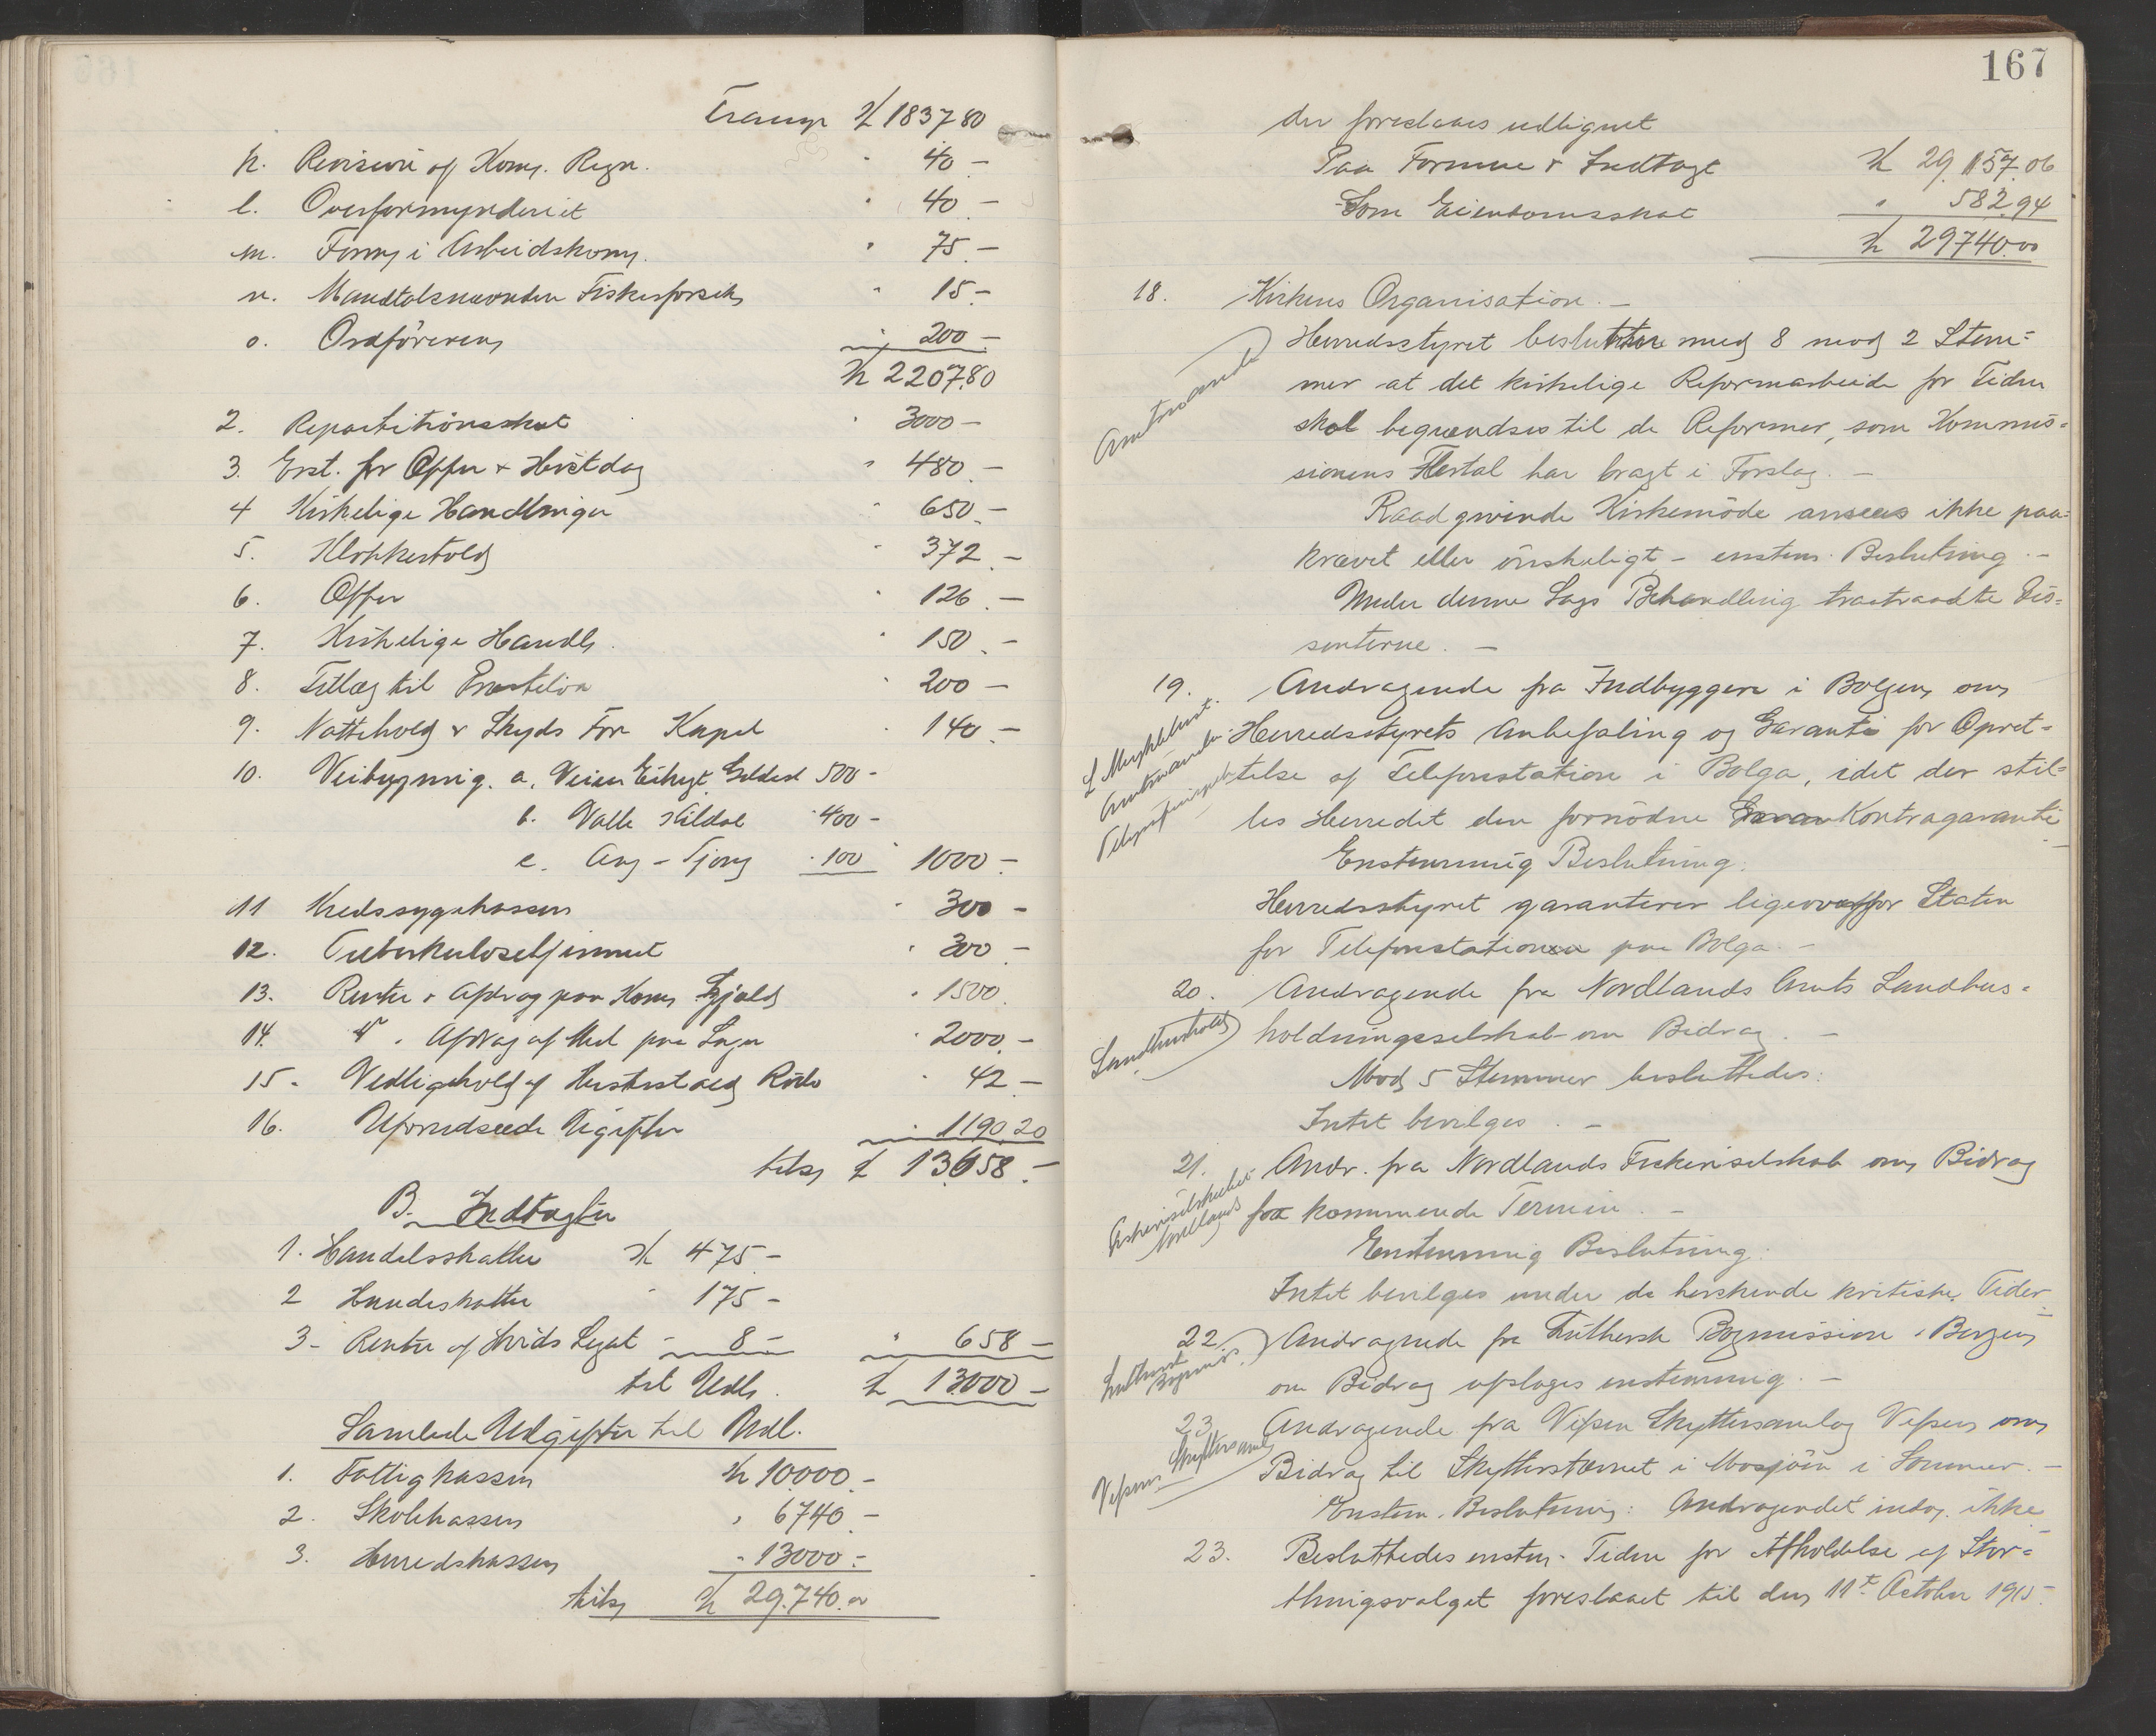 Transp Kr 1837 80
k. Revision af Kom. Regn. " 40 –
l. Overformynderiet " 40 –
m. Form i Arbeidskom. " 75 –
n. Mandtalsnævnden Fiskerforsik " 15 –
o. Ordføreren " 200 –
Kr 2207.80
2. Repartitionsskat " 3000 –
3. Erst. for Offer & Høstdag " 480 –
4 Kirkelige Handlinger " 650 –
5. Klokkertold " 372 –
6. Offer " 126 –
7. Kirkelige Handl. " 150 –
8. Tillæg til " 200 –
9. Nattehold & Skyds For Kapel " 140 –
10. Veibygning. a. Veien Gildesk 500 –
b. Valle Kildal " 400 –
c. Aag – Tjong " 100 " 1000 –
11 Kredssygekassen " 300 –
12. Tuberkulosehjemmet " 300 –
13. Renter & Afdrag paa Kom Gjæld " 1500.
14. " " Afdrag af Udl paa Lager " 2000 –
15. Vedligehold af Hestestald Rödö " 42 –
16. Uforudseede Udgifter " 1190.20
tils Kr 13658. –
B. Indtægter
1. Handelsskatter Kr 475 –
2 Hundeskatter " 175 –
3 – Renter af Hvids Legat – 8 – " 658 –
til Udl. Kr 13000 –
Samlede Udgifter til Udl.
1. Fattigkassen Kr 10000. –
2. Skolekassen " 6740. –
3. Herredskassen " 13000. –
tils Kr 29.740.00
167
der foreslaaes udlignet
Paa Formue & Indtægt Kr 29.157.06
Som Eiendomsskat " 582.94
Kr 29740.00
18. Kirkens Organisation. –
Amtmanden
Herredsstyret beslutter med 8 mod 2 Stem=
mer at det kirkelige Reformarbeide for Tiden
skal begrændses til de Reformer, som Kommis=
sionens Flertal har bragt i Forslag. –
Raadgivende Kirkemöde ansees ikke paa=
krævet eller önskeligt – enstem. Beslutning. –
Under denne Sags Behandling fratraadte Dis=
senterne. –
19. Andragende fra Indbyggere i Bolgen om
Amtmanden
Herredsstyrets Anbefaling og Garanti for Opret=
telse af Telefonstation i Bolga, idet der stil=
les Herredet den fornödne Kontragaranti
Enstemmig Beslutning:
Herredsstyret garanterer ligeoverfor Staten
for Telefonstationen paa Bolga. –
20. Andragende fra Nordlands Amts Landhus=
Landhushold
holdningsselskab om Bidrag. –
Mod 5 Stemmer besluttedes:
Intet bevilges. –
21. Andr. fra Nordlands Fiskeriselskab om Bidrag
Fiskeriselskabet Nordlands
for kommende Termin. –
Enstemmig Beslutning:
Intet bevilges under de herskende kritiske Tider
22. Andragende fra Luthersk Bogmission i Bergen
Luthersk Bogmis.
om Bidrag afslages enstemmig. –
23. Andragende fra Vefsen Skyttersamlag Vefsen om
Vefsen Skyttersamlag
Bidrag til Skytterstævnet i Mosjöen i Sommer. –
Enstem. Beslutning: Andragendet indv. ikke
23. Besluttedes enstem. Tiden for Afholdelse af Stor=
thingsvalget foreslaaet til den 11t October 1915.